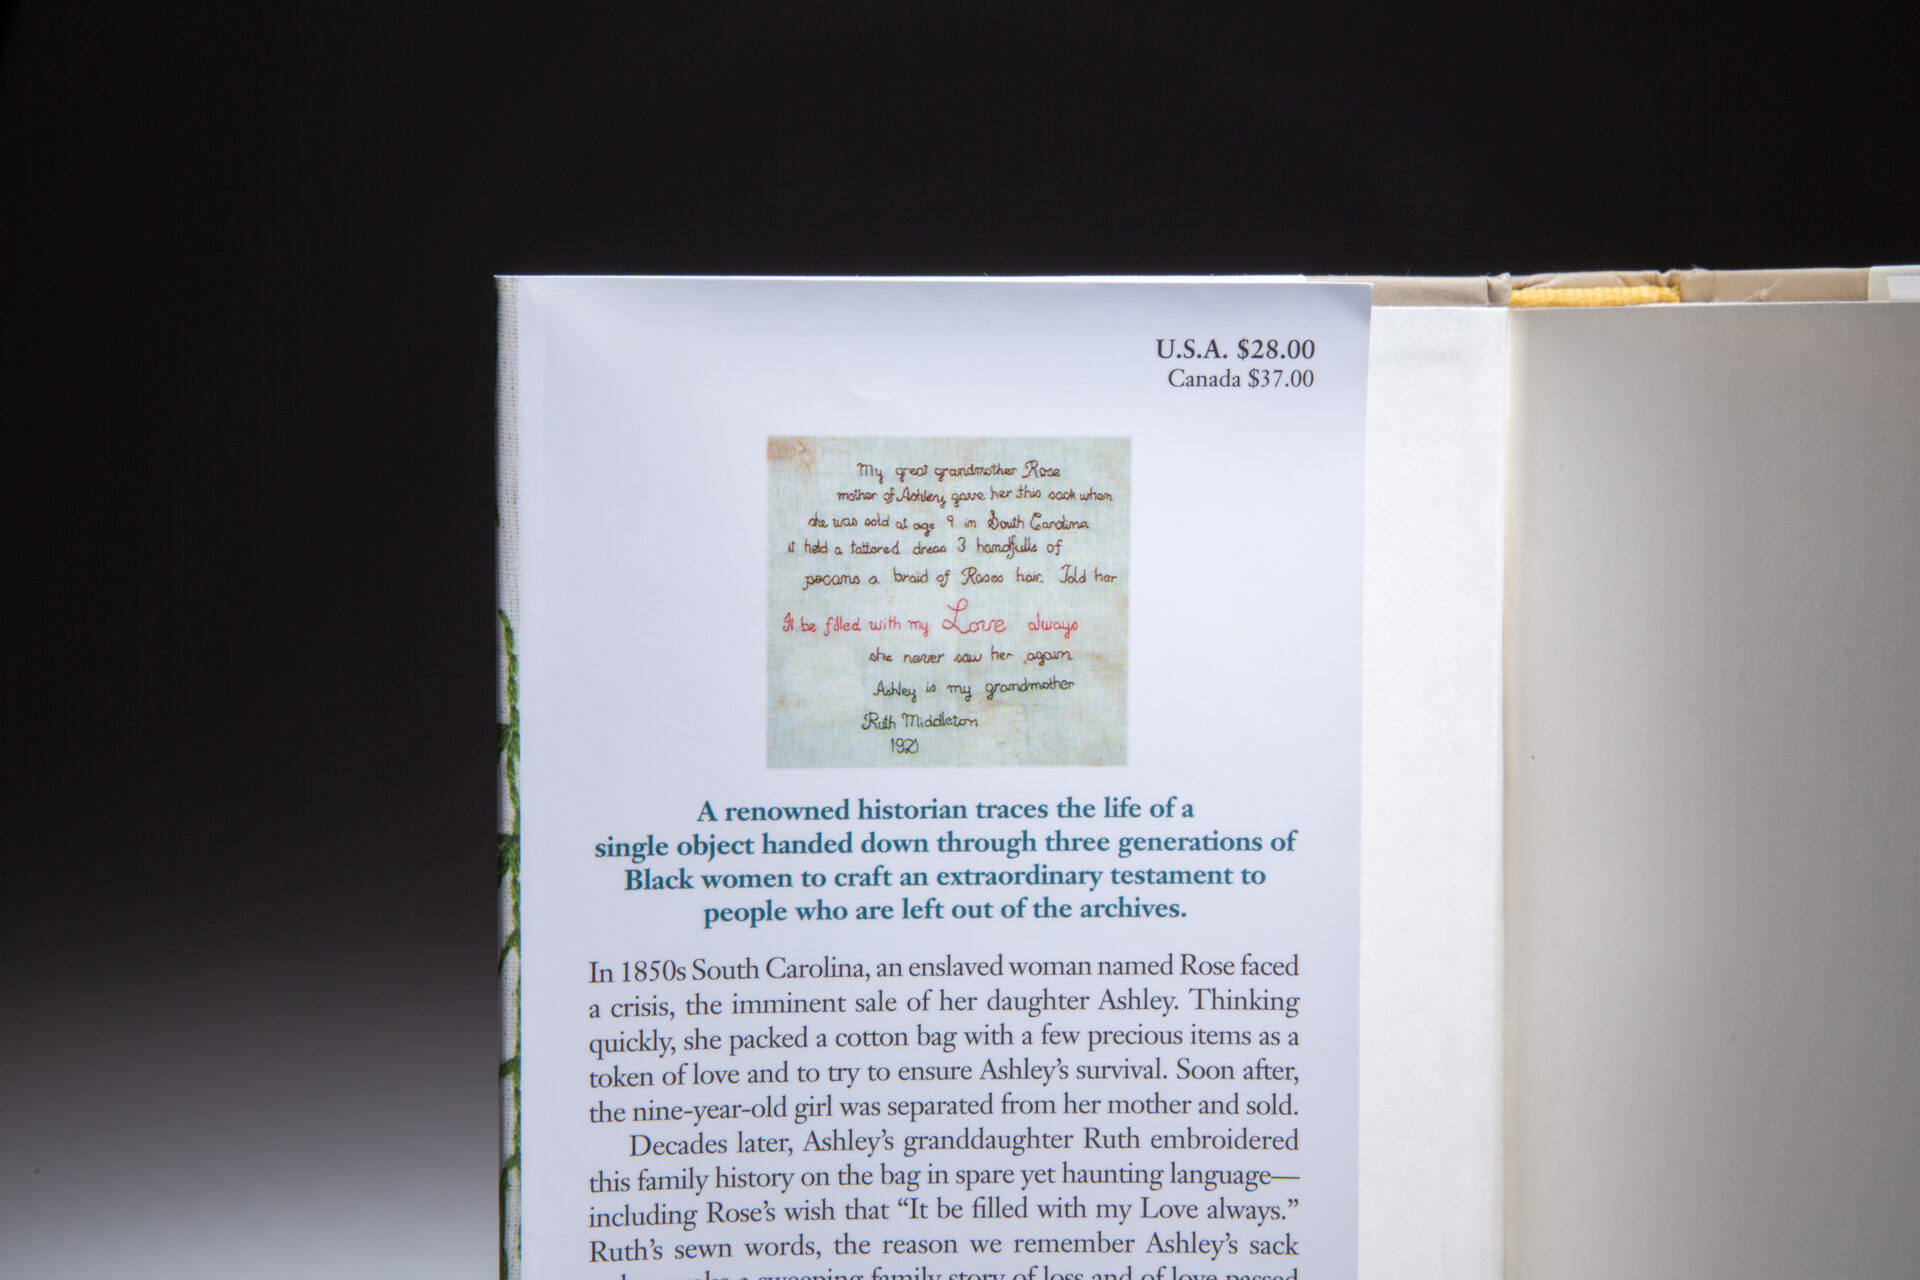 U.S.A. $28.00
Canada $37.00
My great grandmother Rose
mother of Ashley gave her this sack when
she was sold at age 9 in South Carolina
it held a tattered dress 3 handfulls of
pecans a braid of Roses hair. Told her
It be filled with my Love always
she never saw her again
Ashley is my grandmother
Ruth Middleton
1921
A renowned historian traces the life of a
single object handed down through three generations of
Black women to craft an extraordinary testament to
people who are left out of the archives.
In 1850s South Carolina, an enslaved woman named Rose faced
a crisis, the imminent sale of her daughter Ashley. Thinking
quickly, she packed a cotton bag with a few precious items as a
token of love and to try to ensure Ashley’s survival. Soon after,
the nine-year-old girl was separated from her mother and sold.
Decades later, Ashley’s granddaughter Ruth embroidered
this family history on the bag in spare yet haunting language—
including Rose’s wish that “It be filled with my Love always.”
Ruth’s sewn words, the reason we remember Ashley’s sack
a sweeping family story of loss and of love passed